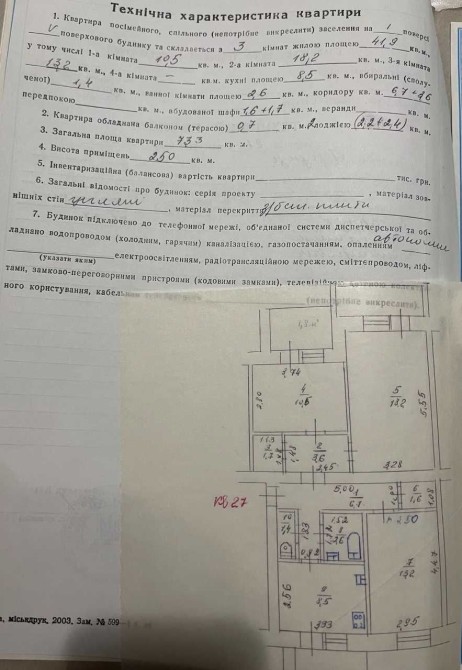 Технічна характеристика квартири
1. Квартира посімейного, спільного (непотрібне викреслити) заселення на 1 поверсі
V поверхового будинку та складається з 3 кімнат жилою площею 41,9 кв. м.,
у тому числі 1-а кімната 10,5 кв. м., 2-а кімната 18,2 кв. м., 3-я кімната
13,2 кв. м., 4-а кімната — кв.м. кухні площею 8,5 кв. м., вбиральні (сполу-
ченої) 1,4 кв. м., ванної кімнати площею 2,6 кв. м., коридору кв. м.
передпокою кв. м., вбудованої шафи 1,6 + 1,7 кв. м., веранди кв. м.
2. Квартира обладнана балконом (терасою) 0,7 кв. м. лоджією (2,2+2,4) кв. м.
3. Загальна площа квартири 73,3 кв. м.
4. Висота приміщень 2,50 кв. м.
5. Інвентаризаційна (балансова) вартість квартири тис. грн.
6. Загальні відомості про будинок: серія проекту , матеріал зов-
нішніх стін цегляні , матеріал перекриття плити
7. Будинок підключено до телефонної мережі, об'єднаної системи диспетчерської та об-
ладнано водопроводом (холодним, гарячим) каналізацією, газопостачанням, опаленням
(указати яким) електроосвітленням, радіотрансляційною мережею, сміттєпроводом, ліф-
тами, замково-переговорними пристроями (кодовими замками),
ного користування, (непотрібне викреслити).
3,74
2,80
4
10,5
5
18,2
5,55
3,28
2
1,7
1,48
3,6
2,45
5,00
6,7
6
1,6
1,08
кв 27
10
1,4
1,52
8
2,6
2,30
7
13,2
4,47
2,56
9
8,5
3,33
2,95
, міськдрук, 2003, Зам. № 599